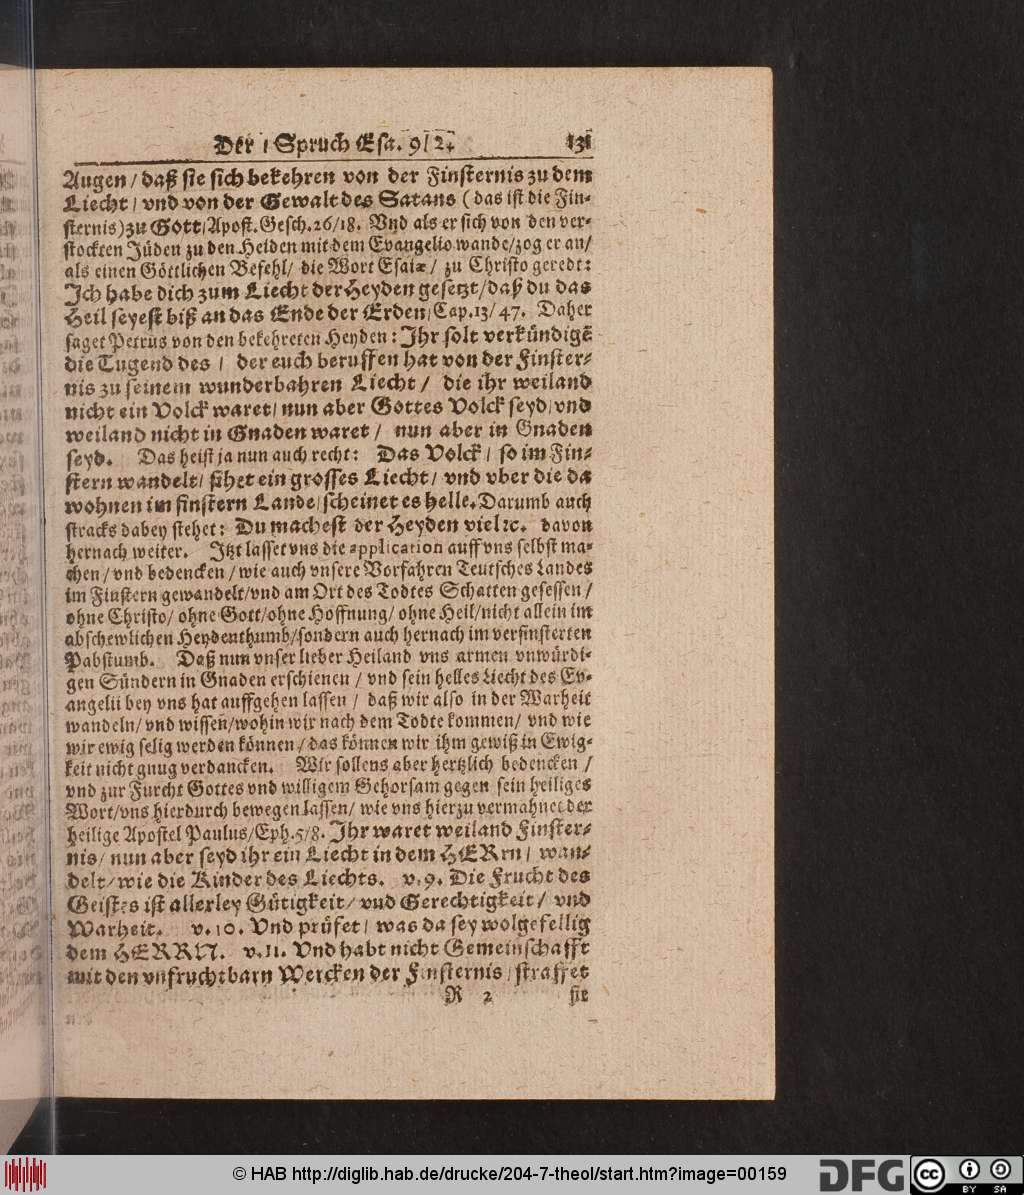 Der 1 Spruch Esa. 9/2. 131
Augen / daß sie sich bekehren von der Finsternis zu dem
Liecht / vnd von der Gewalt des Satans (das ist die Fin-
sternis) zu Gott / Apost. Gesch. 26/18. Vnd als er sich von den ver-
stockten Jüden zu den Heiden mit dem Evangelio wande / zog er an /
als einen Göttlichen Befehl / die Wort Esaiæ / zu Christo geredt:
Ich habe dich zum Liecht der Heyden gesetzt / daß du das
Heil seyest biß an das Ende der Erden / Cap. 13/47. Daher
saget Petrus von den bekehreten Heyden: Ihr solt verkündigē
die Tugend des / der euch beruffen hat von der Finster-
nis zu seinem wunderbahren Liecht / die ihr weiland
nicht ein Volck waret / nun aber Gottes Volck seyd / vnd
weiland nicht in Gnaden waret / nun aber in Gnaden
seyd. Das heist ja nun auch recht: Das Volck / so im Fin-
stern wandelt / sihet ein grosses Liecht / vnd vber die da
wohnen im finstern Lande / scheinet es helle. Darumb auch
stracks dabey stehet: Du machest der Heyden viel ꝛc. davon
hernach weiter. Itzt lasset vns die application auff vns selbst ma-
chen / vnd bedencken / wie auch vnsere Vorfahren Teutsches Landes
im Finstern gewandelt / vnd am Ort des Todtes Schatten gesessen /
ohne Christo / ohne Gott / ohne Hoffnung / ohne Heil / nicht allein im
abschewlichen Heydenthumb / sondern auch hernach im verfinsterten
Pabstumb. Daß nun vnser lieber Heiland vns armen vnwürdi-
gen Sündern in Gnaden erschienen / vnd sein helles Liecht des Ev-
angelii bey vns hat auffgehen lassen / daß wir also in der Warheit
wandeln / vnd wissen / wohin wir nach dem Todte kommen / vnd wie
wir ewig selig werden können / das können wir ihm gewiß in Ewig-
keit nicht gnug verdancken. Wir sollens aber hertzlich bedencken /
vnd zur Furcht Gottes vnd willigem Gehorsam gegen sein heiliges
Wort / vns hierdurch bewegen lassen / wie vns hierzu vermahnet der
heilige Apostel Paulus / Eph. 5/8. Ihr waret weiland Finster-
nis / nun aber seyd ihr ein Liecht in dem HERrn / wan-
delt / wie die Kinder des Liechts. v. 9. Die Frucht des
Geistes ist allerley Gütigkeit / vnd Gerechtigkeit / vnd
Warheit. v. 10. Vnd prüfet / was da sey wolgefellig
dem HERRN. v. 11. Vnd habt nicht Gemeinschafft
mit den vnfruchtbarn Wercken der Finsternis / straffet
R 2 sie
© HAB http://diglib.hab.de/drucke/204-7-theol/start.htm?image=00159
DFG
cc BY SA